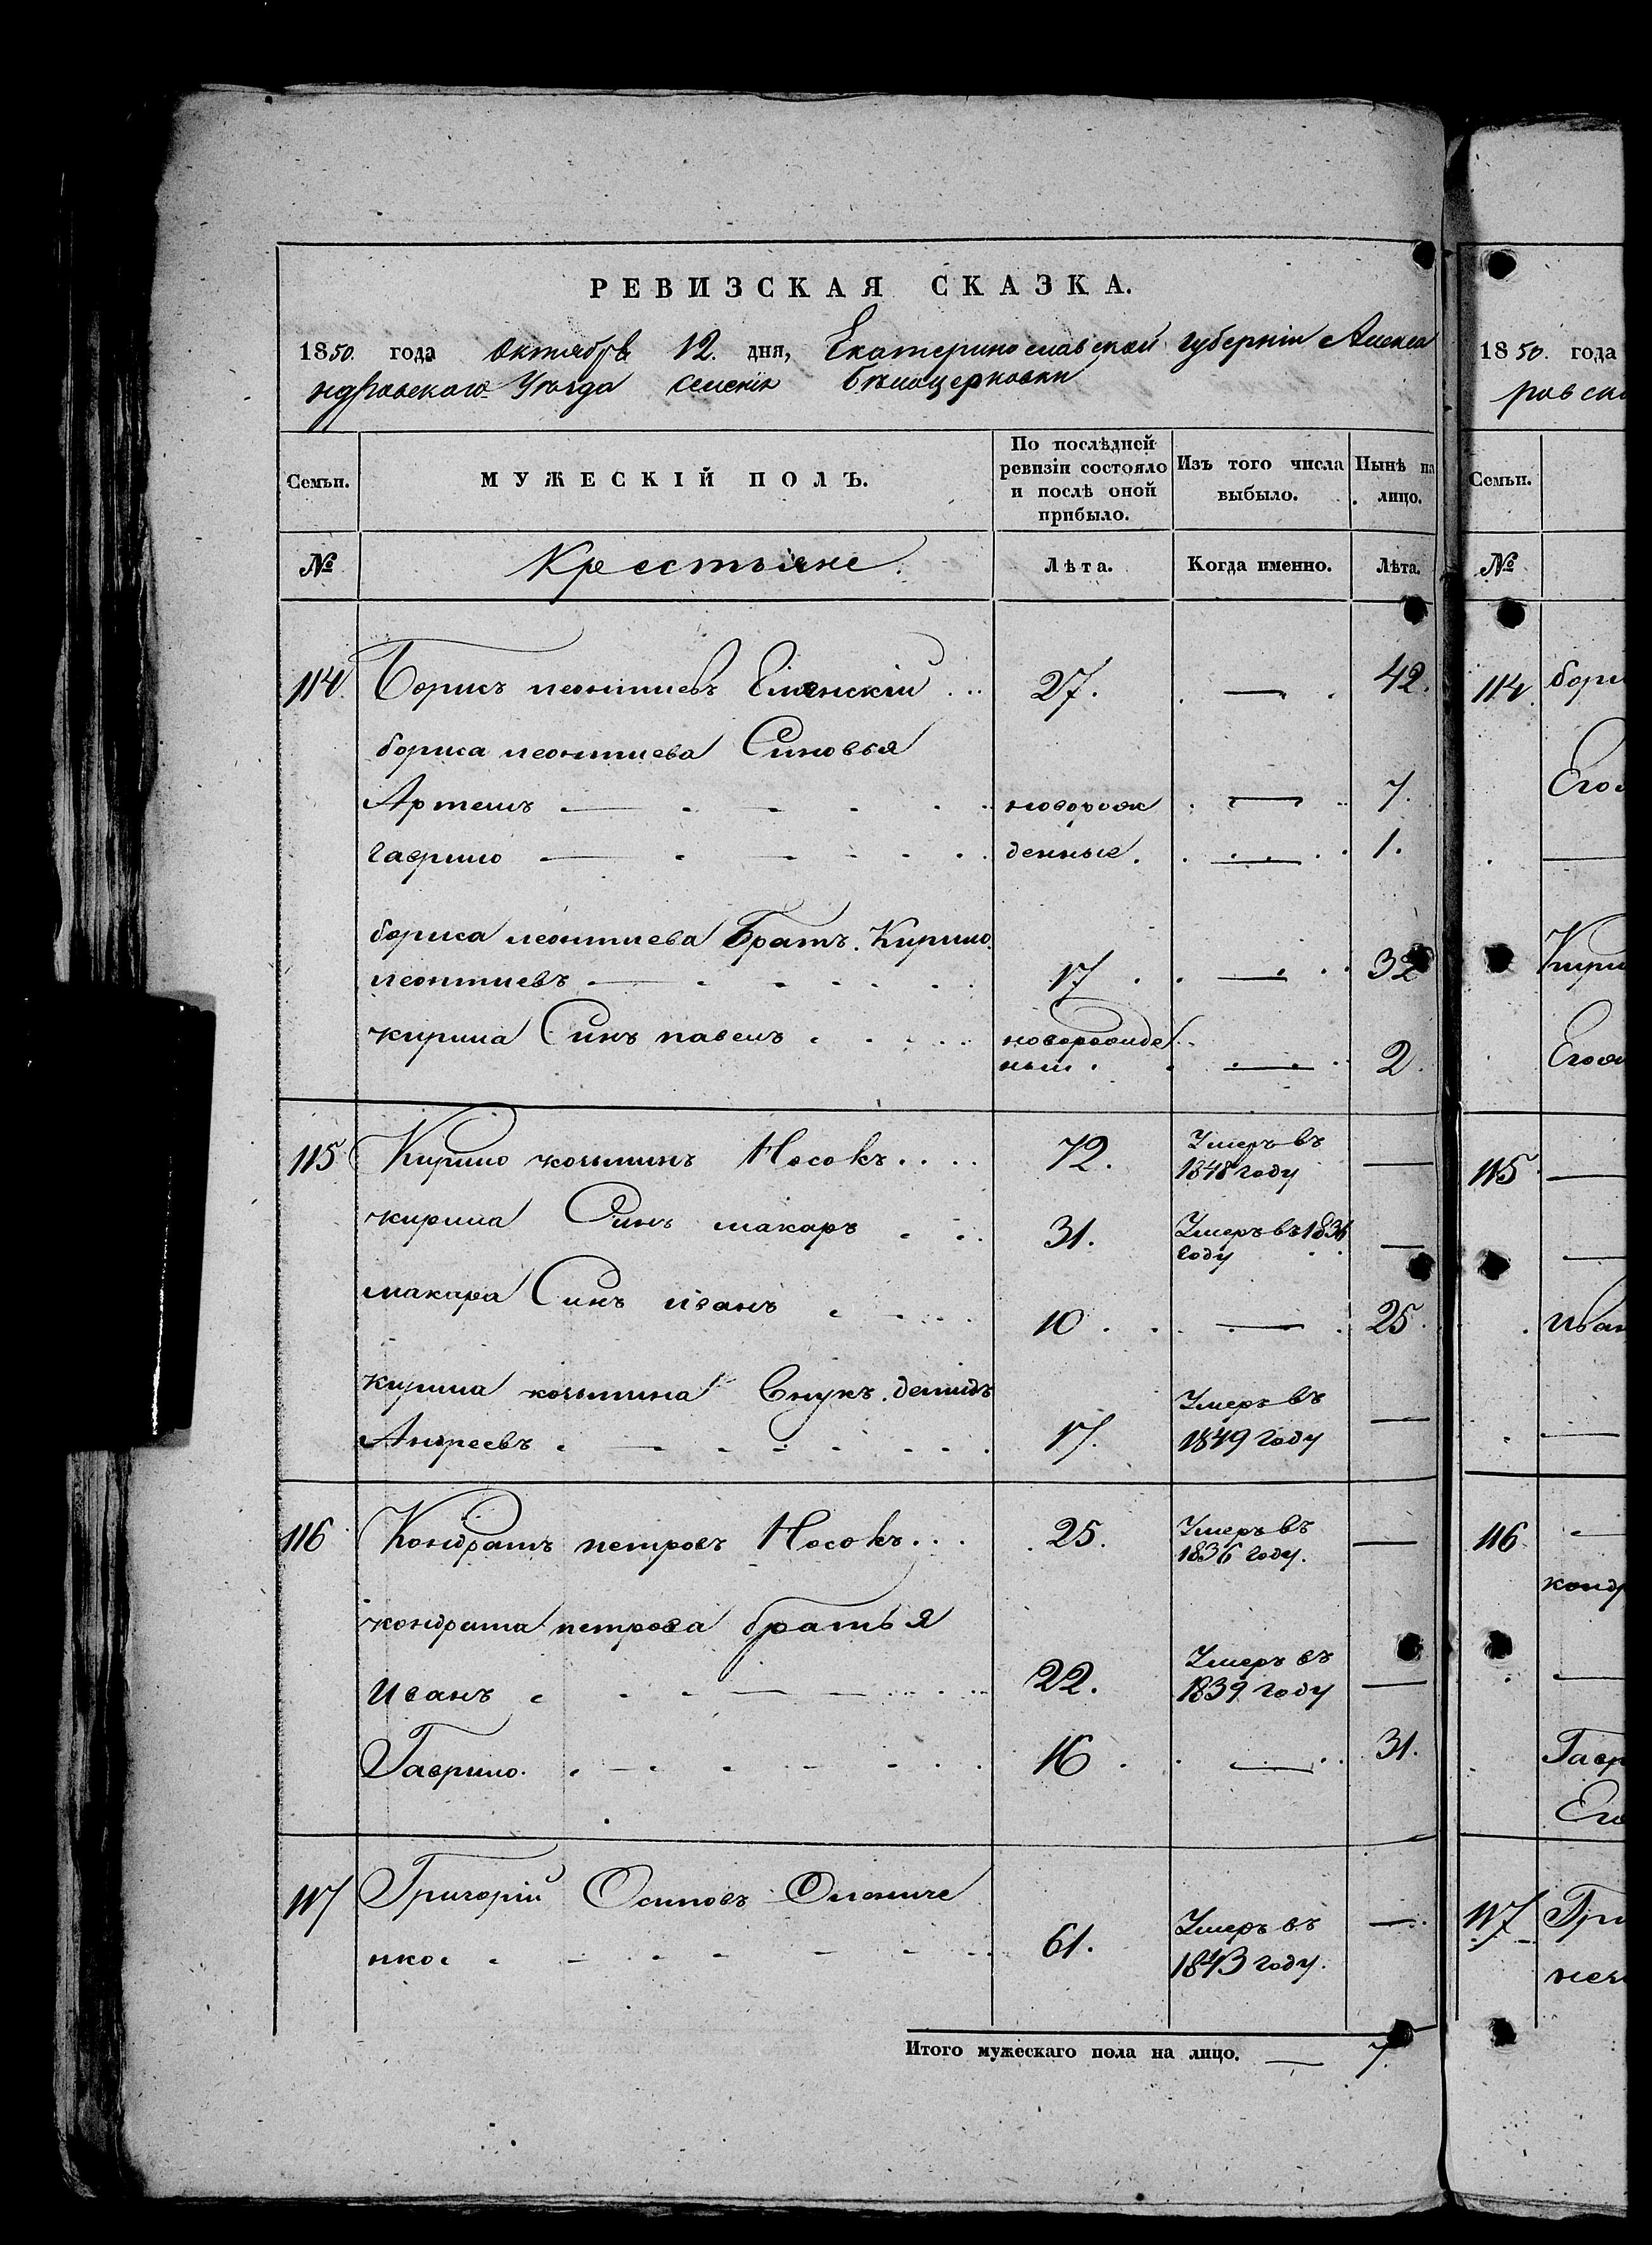 РЕВИЗСКАЯ СКАЗКА.
1850. года октября 12. дня, Екатеринославской губернiи Алекса
ндровскаго Уѣзда селенiя Бѣлоцерковки
Семьи. МУЖЕСКIЙ ПОЛЪ. По послѣдней ревизiи состояло и послѣ оной прибыло. Изъ того числа выбыло. Нынѣ на лицо.
№ Крестьяне. Лѣта. Когда именно. Лѣта.
114. Борисъ леонтиевъ 27. 42.
бориса леонтиева Синовья
Артемъ новорож 7.
гаврило денные. 1.
бориса леонтиева Братъ. Кирило
леонтиевъ 17 32
кирила Синъ павелъ новорожде
ный 2.
115 Кирило козминъ Носокъ 72. Умеръ въ
1848 году
кирила Синъ макаръ 31. Умеръ въ 1836
году
макара Синъ иванъ 10 25
кирила козмина Внукъ демидъ Умеръ въ
Андреевъ 17. 1849 году
116 Кондратъ петровъ Носокъ 25. Умеръ въ
1836 году.
кондрата петрова братья
Иванъ 22. Умеръ въ
1839 году
Гаврило. 16 31.
117 Григорiй Осиповъ Олениче
нко 61. Умеръ въ
1843 году.
Итого мужескаго пола на лицо. 7.
1850. года
ровска
Семьи.
№
114. бори
Его
Кири
Его
115
Иван
116
конд
Гавр
Его
117 Гри